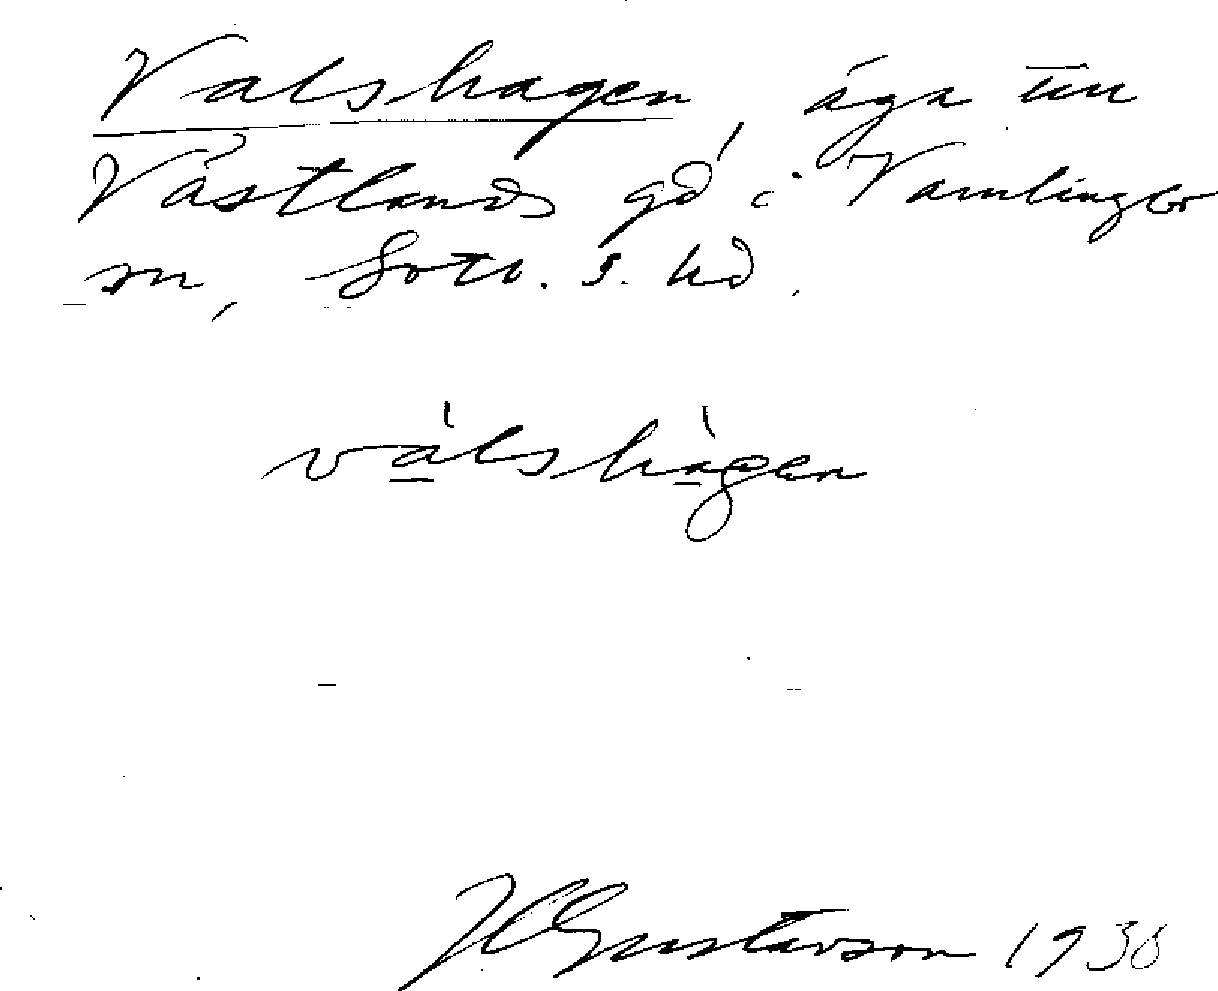 Valshagen, äga till
Västlands gd i Vamlingbo
sn, Gotl. s. hd.
válshàgen
H Gustavson 1938